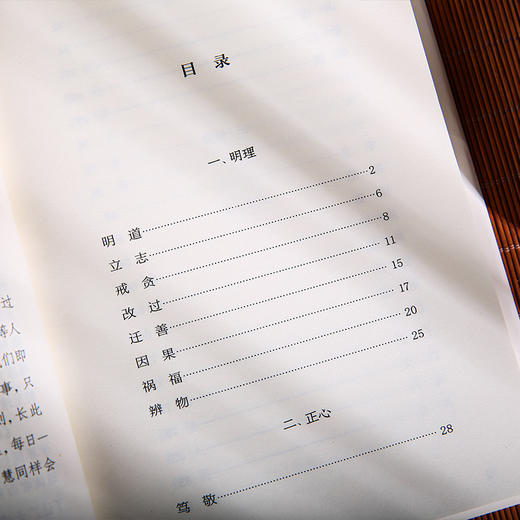 过
等人
们即
事，只
则，长此
，每日一
慧同样会
目 录
一、明理
明 道……2
立 志……6
戒 贪……8
改 过……11
迁 善……15
因 果……17
祸 福……20
辨 物……25
二、正心
笃 敬……28